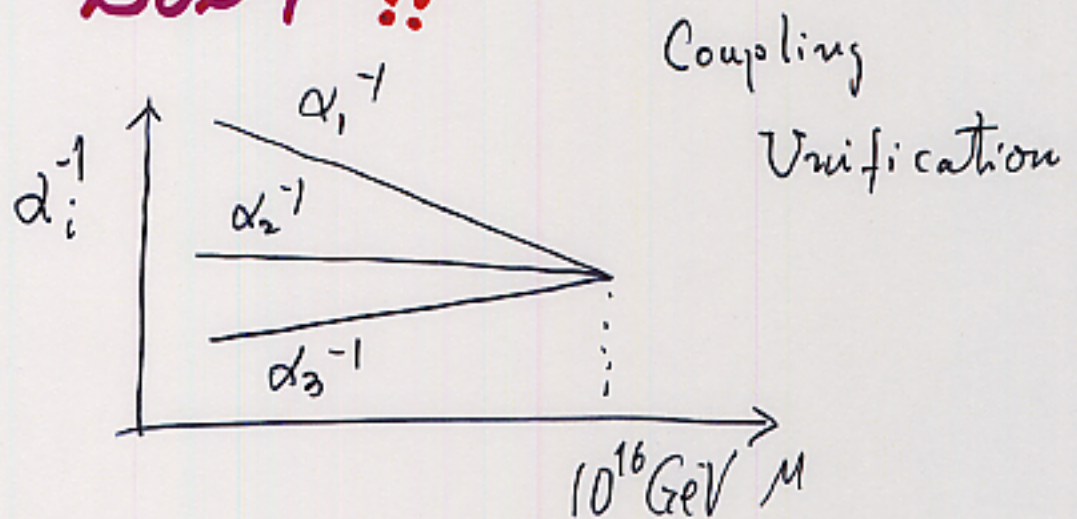 SUSY !!
Coupling
Unification
α₁⁻¹
αᵢ⁻¹
α₂⁻¹
α₃⁻¹
10¹⁶ GeV μ